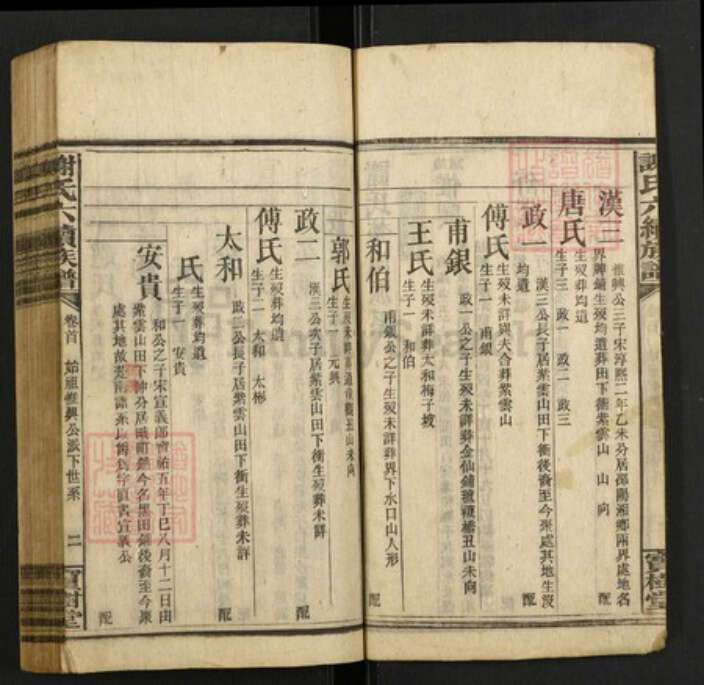 謝氏六續族譜
寶樹堂
漢三
振興公三子宋淳熙二年乙未分居邵陽湘鄉兩界處地名
界牌鋪生歿均遺葬田下衝紫雲山 山 向 配
唐氏
生歿葬均遺
生子三 政一 政二 政三
政一
漢三公長子居紫雲山田下衝後裔至今聚處其地生沒
均遺 配
傅氏
生歿未詳與夫合葬紫雲山
生子一 甫銀
甫銀
政一公之子生歿未詳葬金仙鋪 橋丑山未向 配
王氏
生歿未詳葬太和梅子坡
生子一 和伯
和伯
甫銀公之子生歿未詳葬界下水口山人形 配
郭氏
生歿未詳 丑山未向
生子一 元興
政二
漢三公次子居紫雲山田下衝生歿葬未詳 配
傅氏
生歿葬均遺
生子二 太和 太彬
太和
政二公長子居紫雲山田下衝生歿葬未詳 配
氏
生歿葬均遺
生子一 安貴
安貴
和公之子宋宣義郎寶祐五年丁巳八月十二日由
紫雲山田下衝分居 町 今名黑田鋪後裔至今聚
處其地故 宣義公 配
謝氏六續族譜
卷首 始祖振興公派下世系 二
寶樹堂